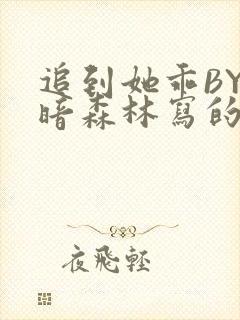 追到她乖BY
暗森林寫的
夜飛輕